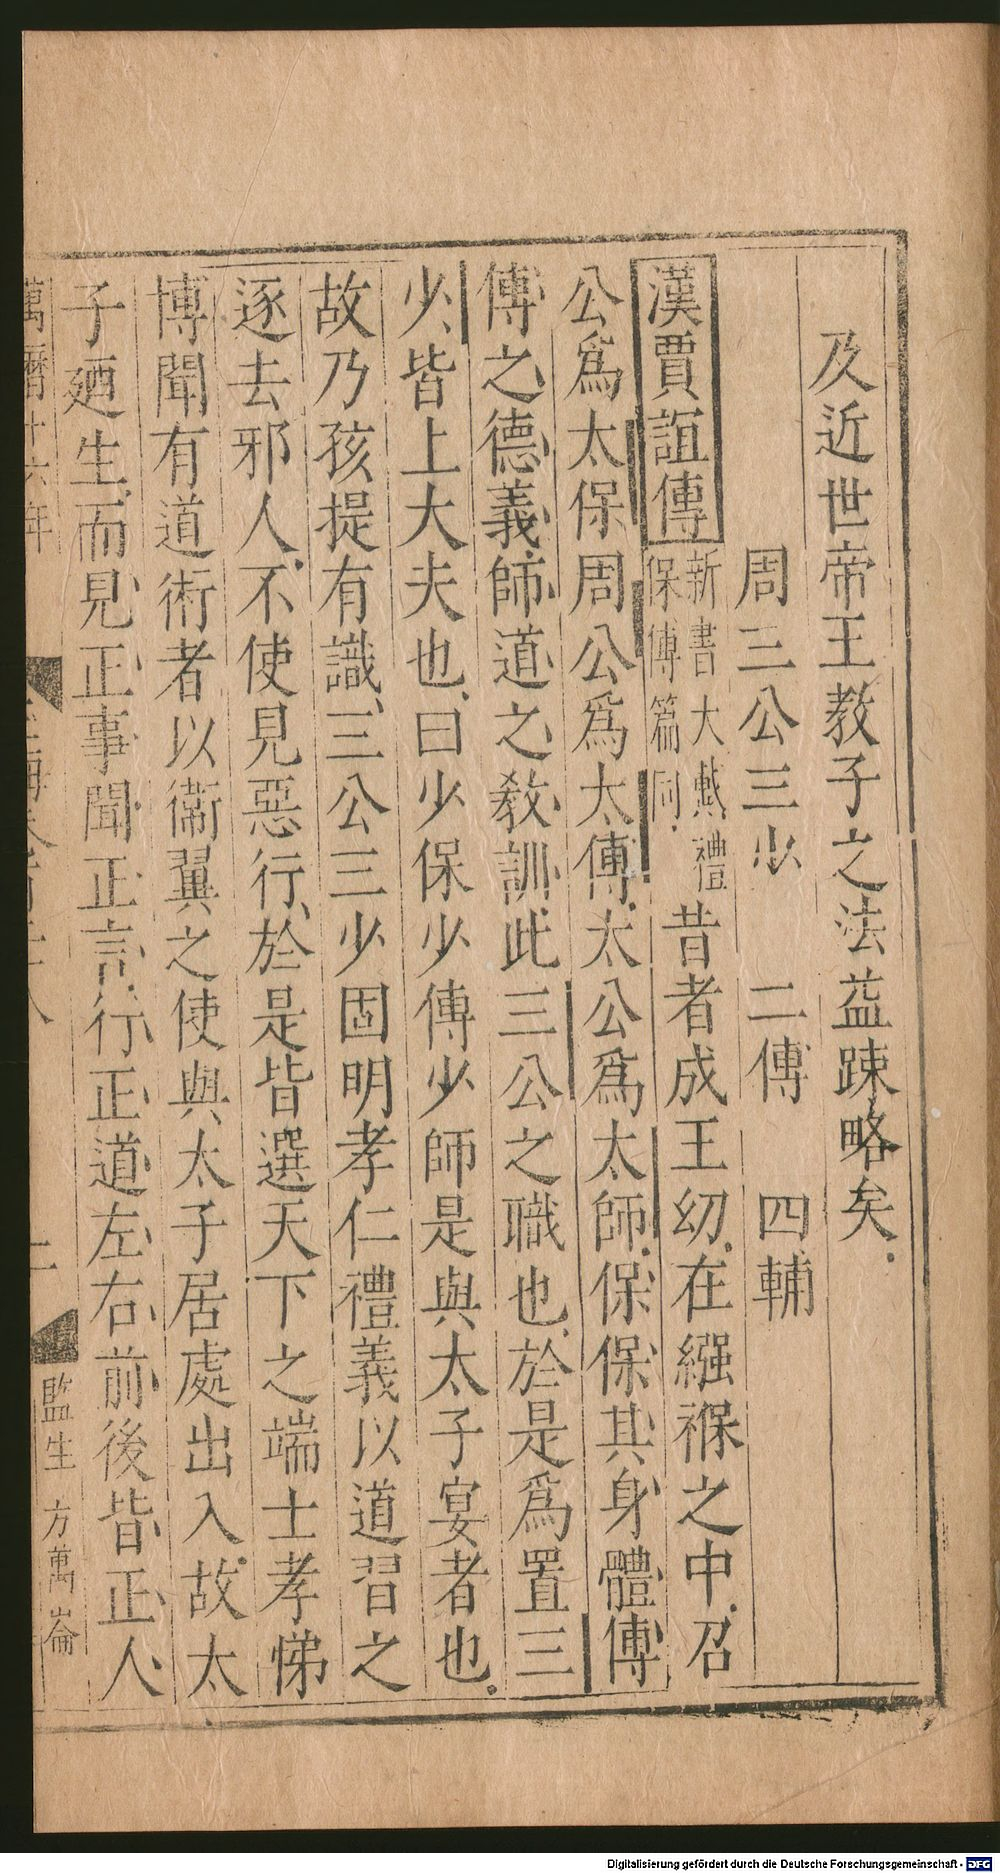 及近世帝王教子之法益踈略矣
周三公三少　二傅　四輔
漢賈誼傳
新書大戴禮
保傅篇同
昔者成王幼在繦褓之中召
公爲太保周公爲太傅太公爲太師保保其身體傅
傅之德義師道之敎訓此三公之職也於是爲置三
少皆上大夫也曰少保少傅少師是與太子宴者也
故乃孩提有識三公三少固明孝仁禮義以道習之
逐去邪人不使見惡行於是皆選天下之端士孝悌
博聞有道術者以衞翼之使與太子居處出入故太
子廼生而見正事聞正言行正道左右前後皆正人
萬曆十六年
監生 方萬崙
Digitalisierung gefördert durch die Deutsche Forschungsgemeinschaft - DFG